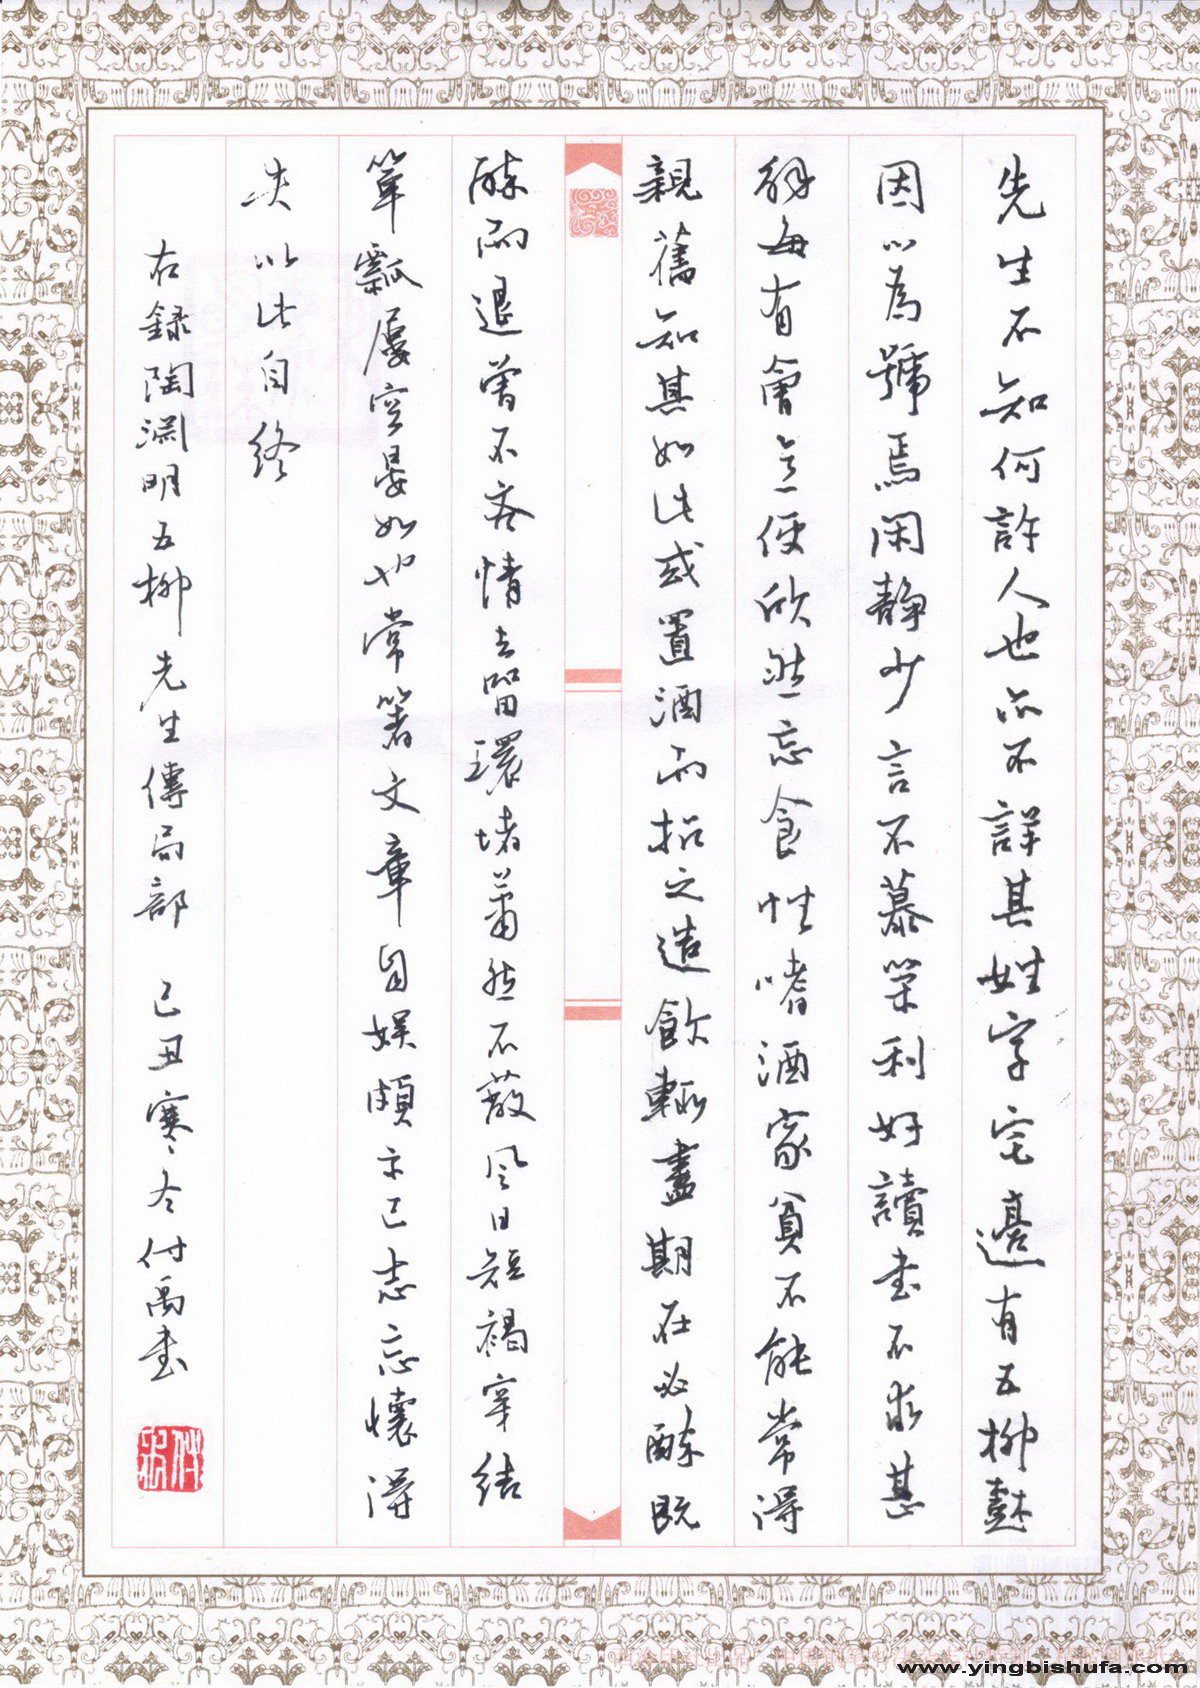 先生不知何許人也亦不詳其姓字宅邊有五柳樹
因以為號焉閑靜少言不慕榮利好讀書不求甚
解每有會意便欣然忘食性嗜酒家貧不能常得
親舊知其如此或置酒而招之造飲輒盡期在必醉既
醉而退曾不吝情去留環堵蕭然不蔽風日短褐穿結
簞瓢屢空晏如也常著文章自娛頗示己志忘懷得
失以此自終
右録陶淵明五柳先生傳局部 己丑寒冬付禹書
www.yingbishufa.com